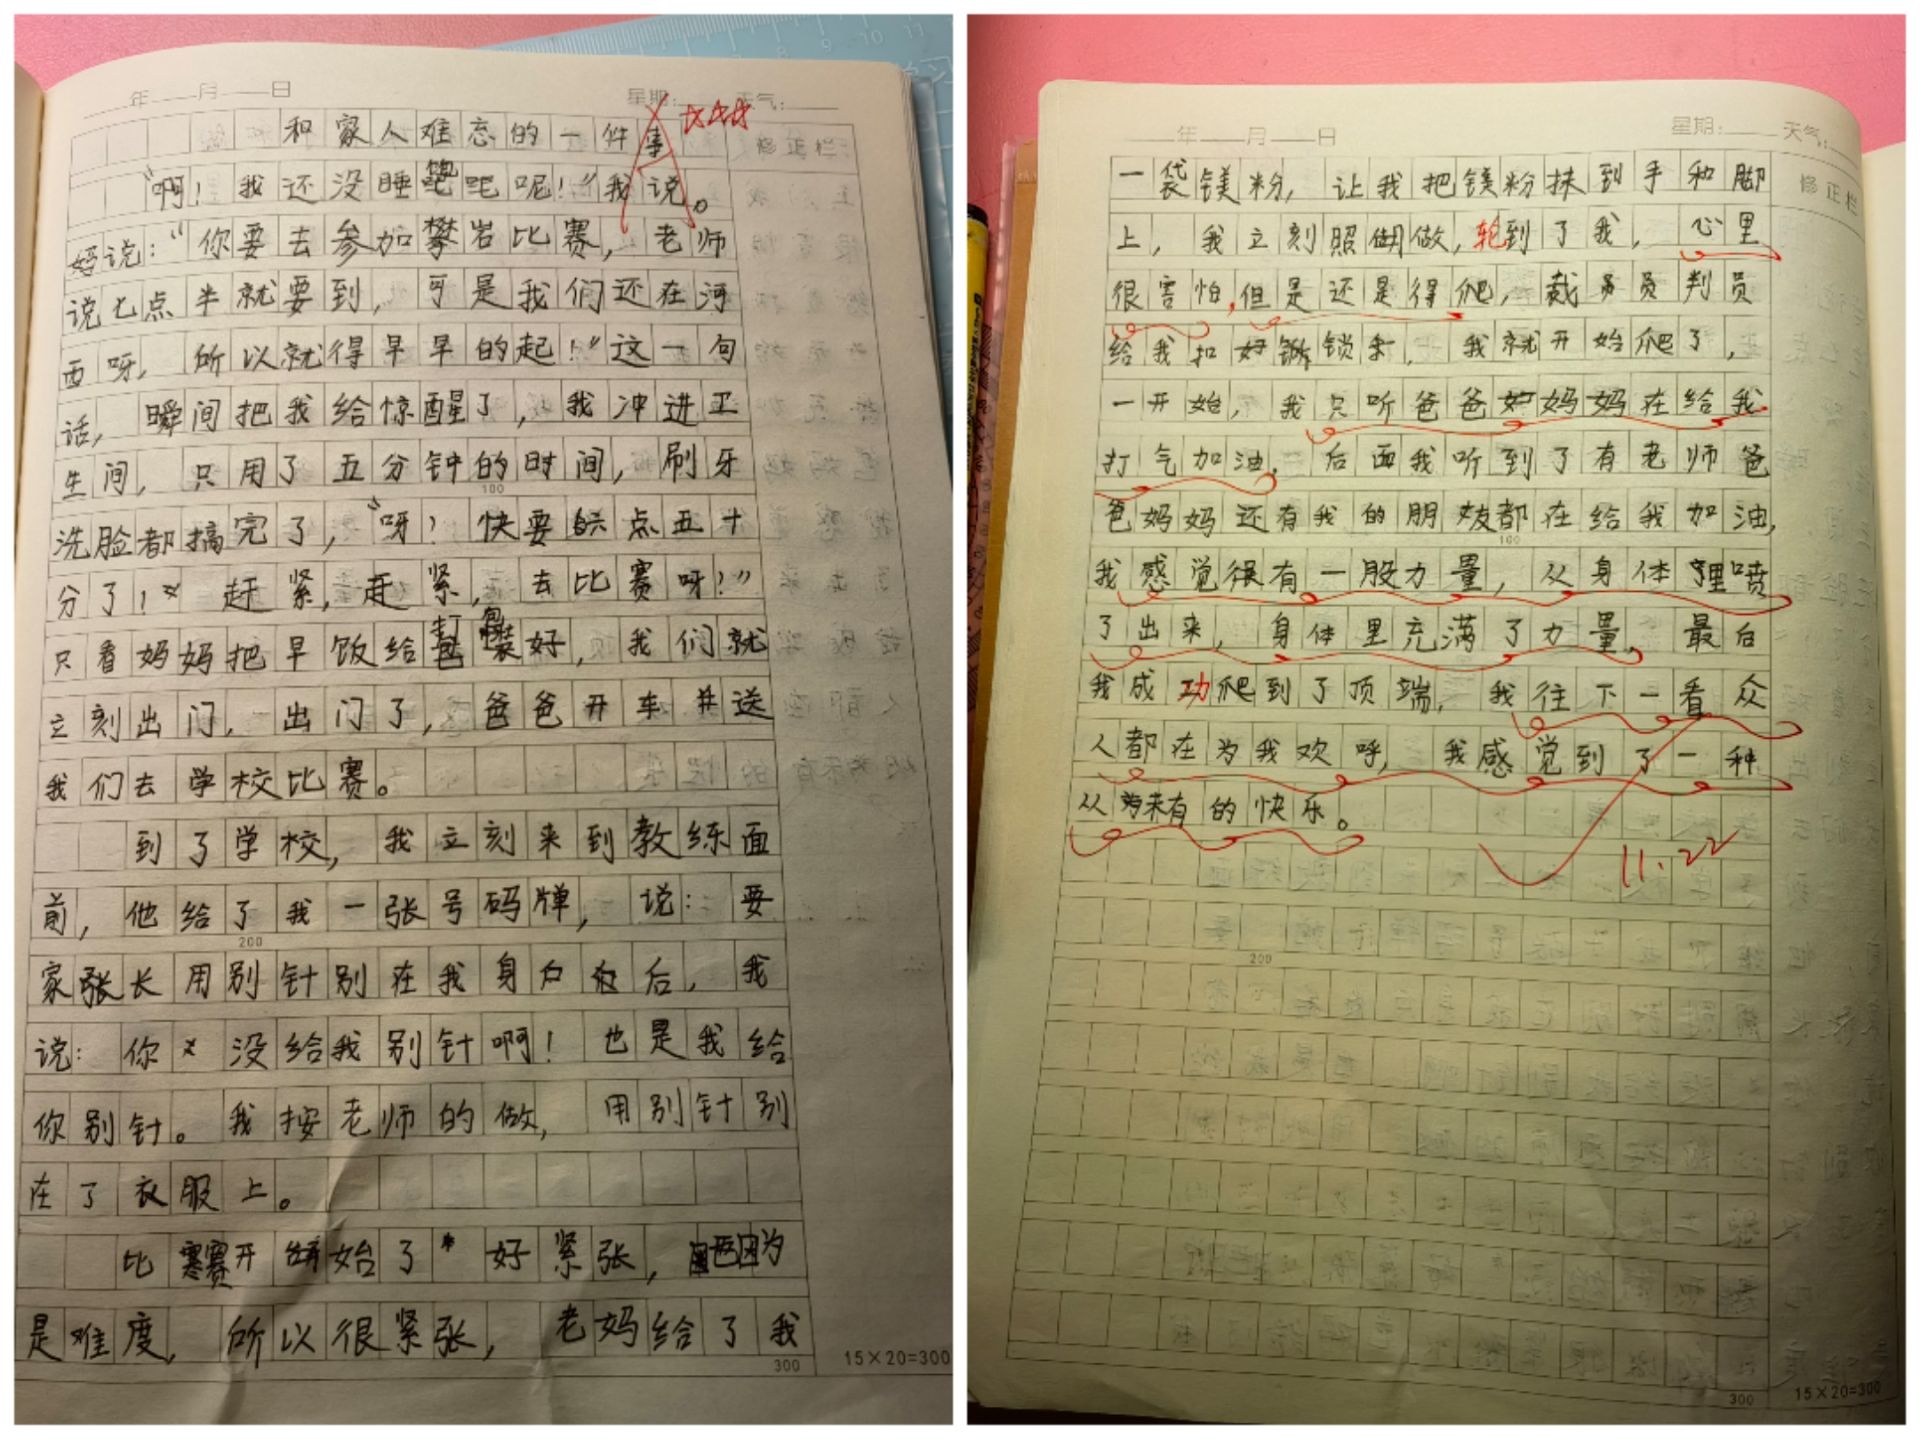 年 月 日 星期： 天气：
和家人难忘的一件事
修正栏
“啊！我还没睡饱吧呢！”我说。
妈说：“你要去参加攀岩比赛，老师
说七点半就要到，可是我们还在河
西呀，所以就得早早的起！”这一句
话，瞬间把我给惊醒了，我冲进卫
生间，只用了五分钟的时间，刷牙
100
洗脸都搞完了，“呀！快要六点五十
分了！赶紧，赶紧，去比赛呀！”
只看妈妈把早饭给打包装好，我们就
立刻出门，出门了，爸爸开车送
我们去学校比赛。
到了学校，我立刻来到教练面
前，他给了我一张号码牌，说：要
200
家长用别针别在我身后，我
说：你没给我别针啊！也是我给
你别针。我按老师的做，用别针别
在了衣服上。
比赛开始了好紧张，因为
是难度，所以很紧张，老妈给了我
300
15×20=300
年 月 日 星期： 天气：
修正栏
一袋镁粉，让我把镁粉抹到手和脚
上，我立刻照做，轮到了我，心里
很害怕，但是还是得爬，裁判员
给我扣好锁扣，我就开始爬了，
一开始，我只听爸爸妈妈在给我
打气加油，后面我听到了有老师爸
爸妈妈还有我的朋友都在给我加油，
100
我感觉很有一股力量，从身体里喷
了出来，身体里充满了力量。最后
我成功爬到了顶端，我往下一看众
人都在为我欢呼，我感觉到了一种
从未有的快乐。
11.22
200
300
15×20=300